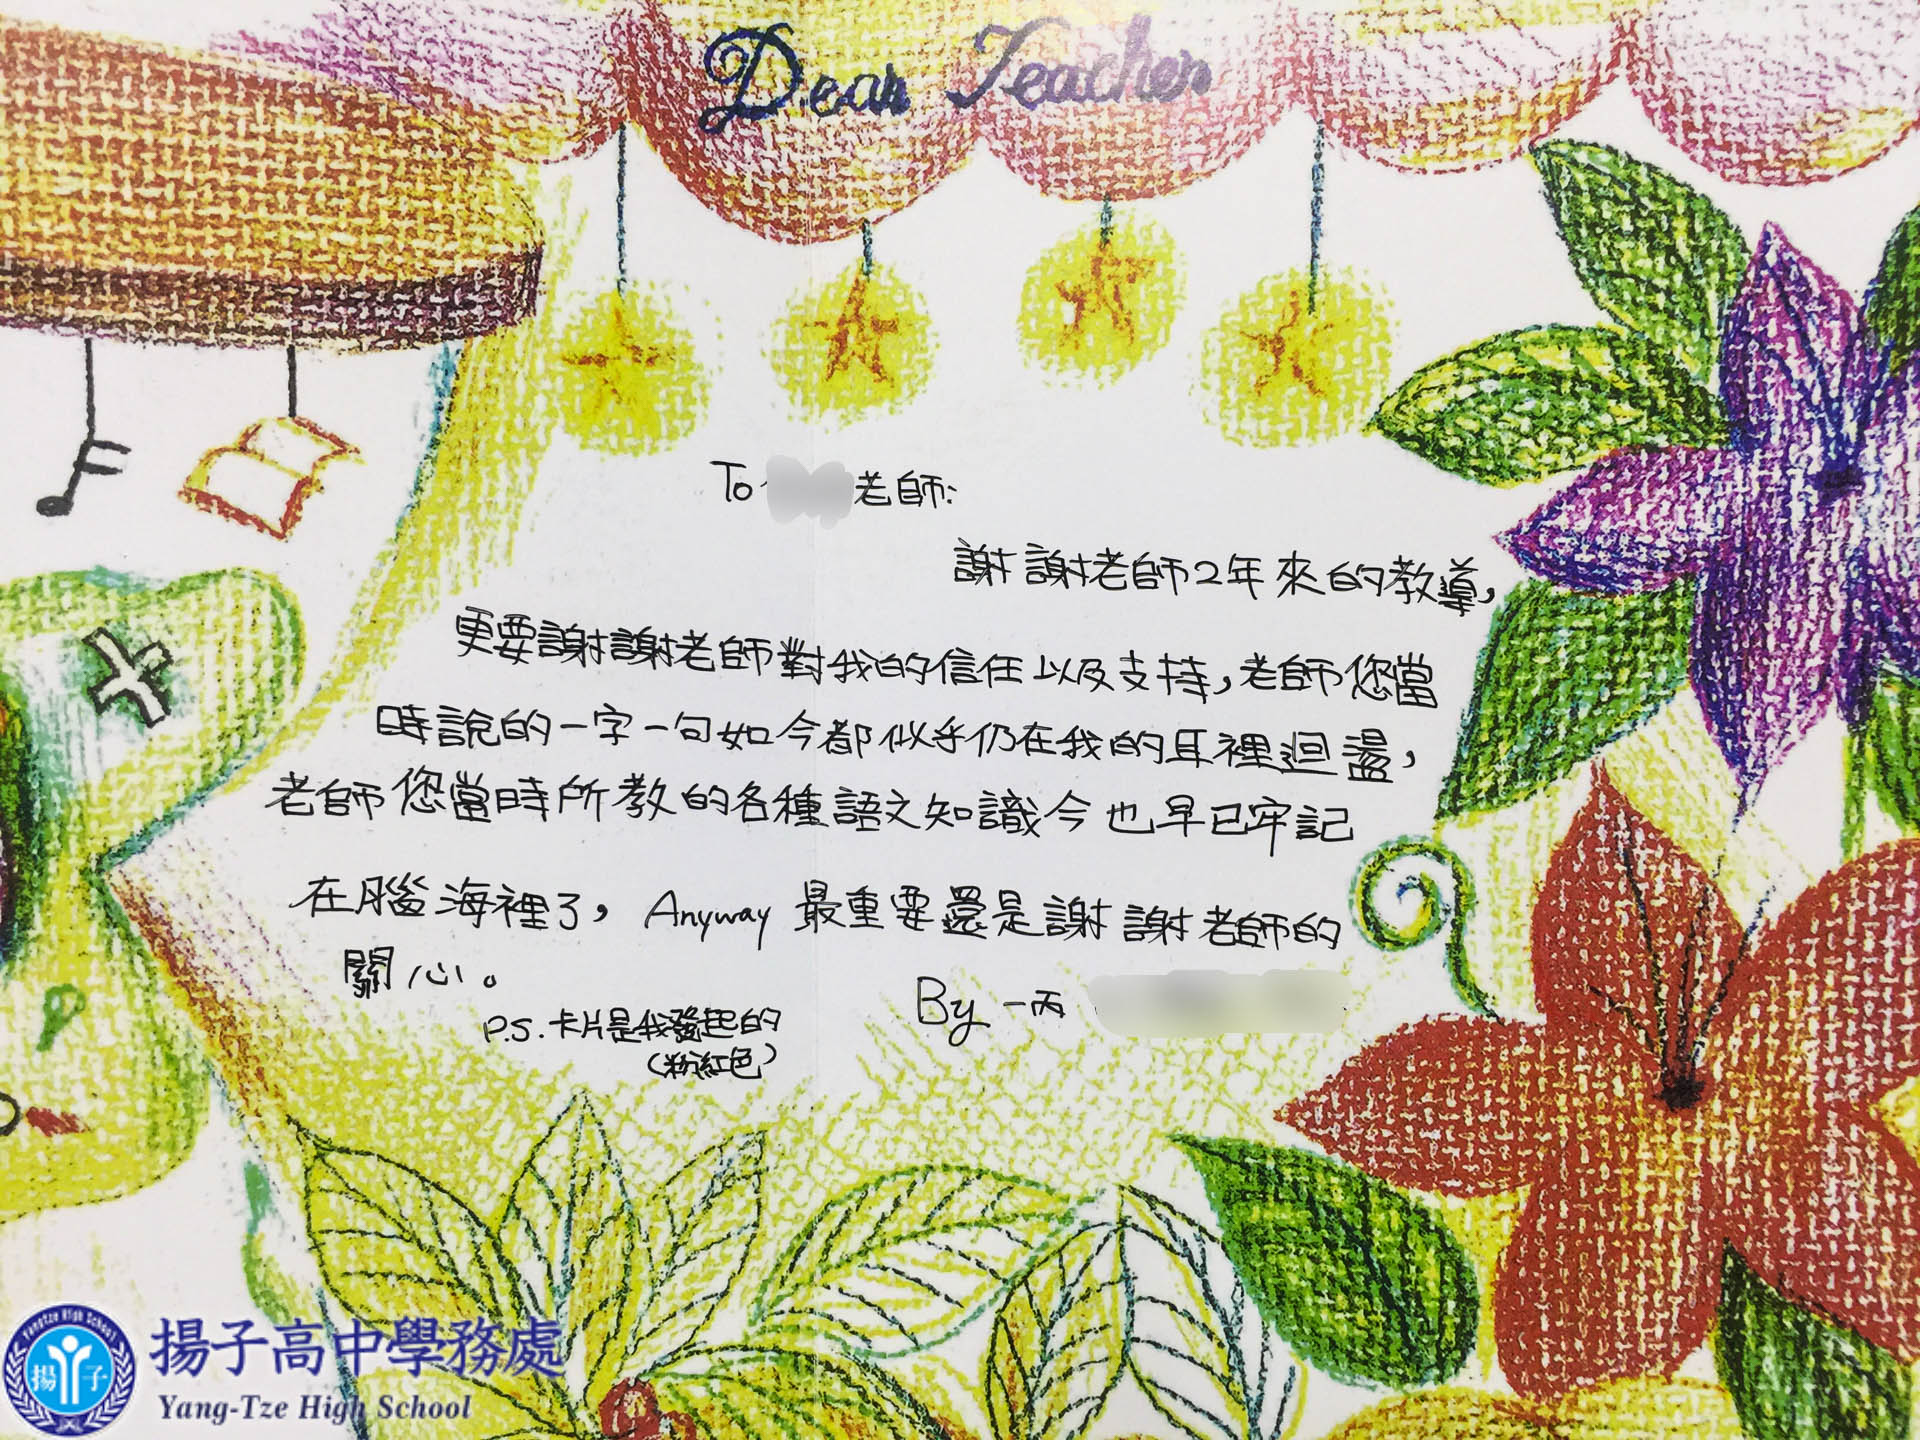 Dear Teacher
To 老師:
謝謝老師2年來的教導,
更要謝謝老師對我的信任以及支持,老師您當
時說的一字一句如今都似乎仍在我的耳裡迴盪,
老師您當時所教的各種語文知識今也早已牢記
在腦海裡了, Anyway 最重要還是謝謝老師的
關心。
By 一丙
P.S. 卡片是我發起的
(粉紅色)
Yangtze High School
揚子
揚子高中學務處
Yang-Tze High School